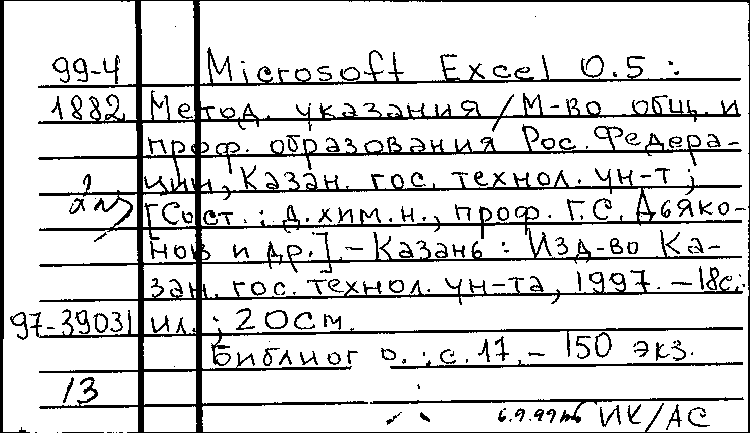 99-4 Microsoft Excel 0.5 :
1882 Метод. указания / М-во общ. и
проф. образования Рос. Федера-
ции, Казан. гос. технол. ун-т ;
[Сост. : д.хим.н., проф. Г.С. Дьяко-
нов и др.]. – Казань : Изд-во Ка-
зан. гос. технол. ун-та, 1997. – 18с. :
97-39031 ил. ; 20см.
Библиог о. : с. 17. – 150 экз.
13
ИК/АС